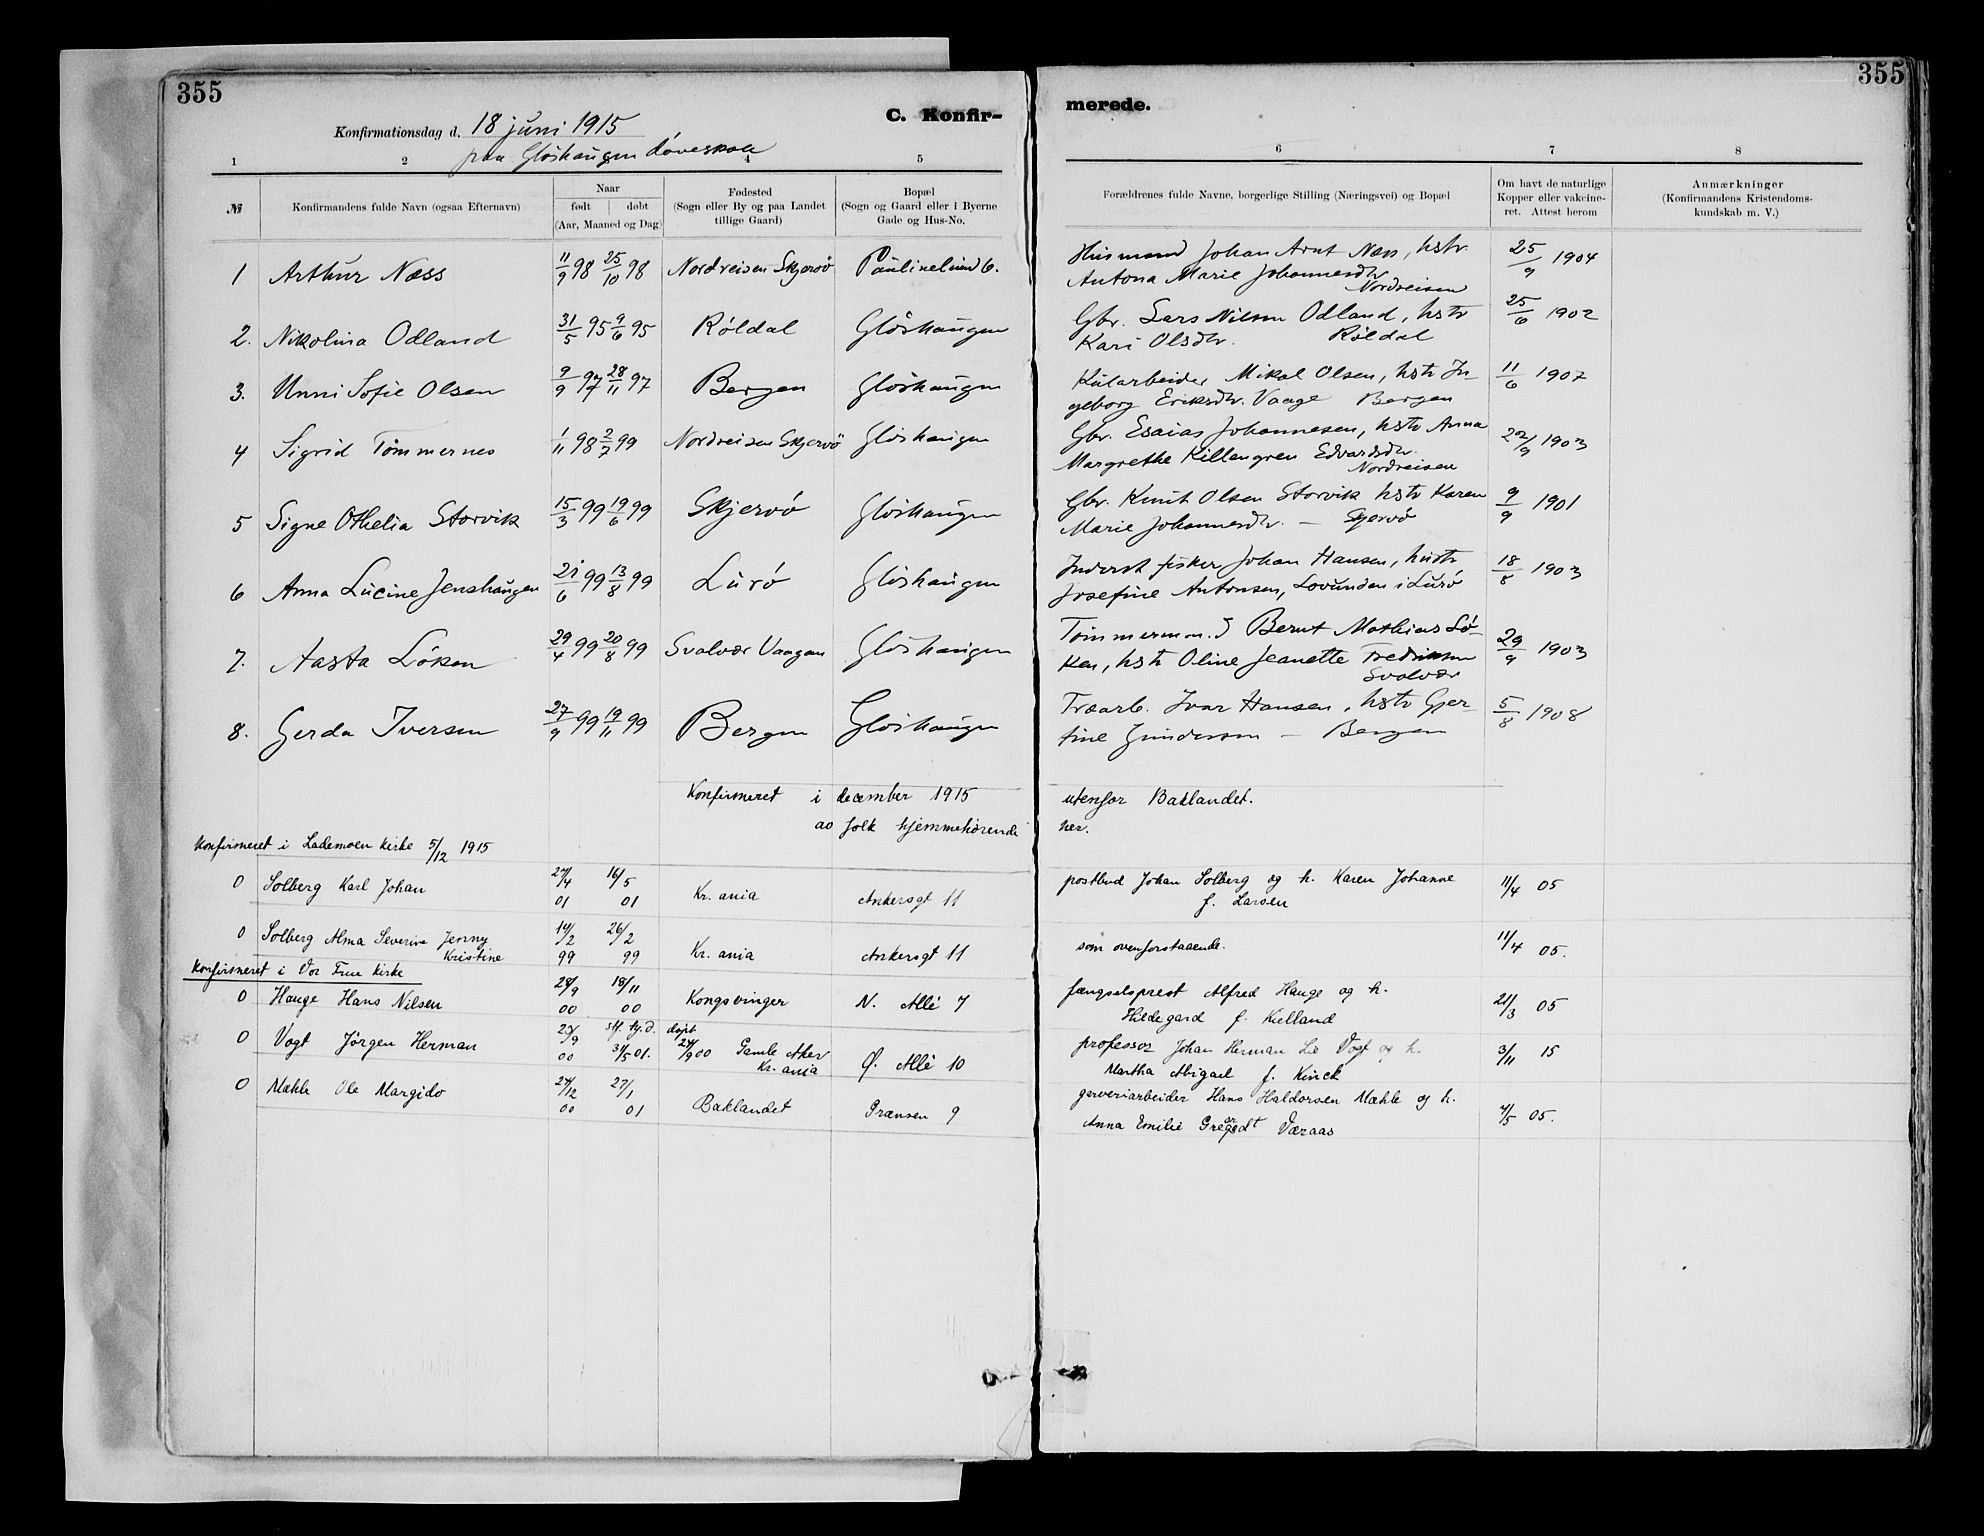 355
C. Konfir-
merede.
355
Konfirmationsdag d. 18 juni 1915
paa Glöshaugen døveskole
1 2 4 5 6 7 8
№ Konfirmandens fulde Navn (ogsaa Efternavn) Naar født døbt (Aar, Maaned og Dag) Fødested (Sogn eller By og paa Landet tillige Gaard) Bopæl (Sogn og Gaard eller i Byerne Gade og Hus-No. Forældrenes fulde Navne, borgerlige Stilling (Næringsvei) og Bopæl Om havt de naturlige Kopper eller vakcineret. Attest herom Anmærkninger (Konfirmandens Kristendomskundskab m. V.)
1 Arthur Næss 11/9 98 25/10 98 Nordreisen Skjervö Paulinelund 6. Husmand Johan Arnt Næss, hstr. 25/9 1904
Antona Marie Johannesdtr
Nordreisen
2. Nikolina Odland 31/5 95 9/6 95 Röldal Glöshaugen Gbr. Lars Nilsen Odland, hstr 25/6 1902
Kari Olsdtr. Röldal
3. Unni Sofie Olsen 9/9 97 28/11 97 Bergen Glöshaugen Kularbeider Mikal Olsen, hstr In- 11/6 1907
geborg Eriksdtr. Vaage Bergen
4 Sigrid Tömmernes 1/11 98 2/7 99 Nordreisen Skjervö Glöshaugen Gbr. Esaias Johannesen, hstr Anna 22/9 1903
Margrethe Killengren Edvardsdtr.
Nordreisen
5 Signe Othelia Storvik 15/3 99 19/6 99 Skjervö Glöshaugen Gbr. Knut Olsen Storvik hstr Karen 9/9 1901
Marie Johannesdtr. — Skjervö
6 Anna Lucine Jenshaugen 21/6 99 13/8 99 Lurö Glöshaugen Inderst fisker Johan Hansen, hustr 18/8 1903
Josefine Antonsen, Lovunden i Lurö
7. Aasta Löken 29/4 99 20/8 99 Svolvær Vaagan Glöshaugen Tömmerm. Bernt Mathias Lö- 29/9 1903
ken, hstr Oline Jeanette Fredriksen
Svolvær
8. Gerda Iversen 27/9 99 19/11 99 Bergen Glöshaugen Træarb. Ivar Hansen, hstr Gjer- 5/8 1908
tine Gundersen — Bergen
Konfirmeret i december 1915 utenfor Baklandet.
av folk hjemmehörende her.
Konfirmeret i Lademoen kirke 5/12 1915
0 Solberg Karl Johan 27/4 01 16/5 01 Kr.ania Ankersgt 11 postbud Johan Solberg og h. Karen Johanne 11/4 05
f. Larsen
0 Solberg Alma Severine Jenny 14/2 99 26/2 99 Kr.ania Ankersgt 11 som ovenforstaaende. 11/4 05.
Kristine
Konfirmeret i Vor Frue kirke
0 Hauge Hans Nilsen 28/9 00 18/11 00 Kongsvinger N. Allé 7 fængselsprest Alfred Hauge og h. 21/3 05
Hildegard f. Kielland
0 Vogt Jörgen Herman 23/9 00 stf. hj.d. 31/5 01. døpt 24/9 00 Gamle Aker Ö. Allé 10 professor Johan Herman Lie Vogt og h. 3/11 15
Kr.ania Martha Abigael f. Kinck
0 Mæhle Ole Margido 24/12 00 27/1 01 Baklandet Grænsen 9 garveriarbeider Hans Haldorsen Mæhle og h. 4/5 05.
Anna Emilie Gregersdt Væraas